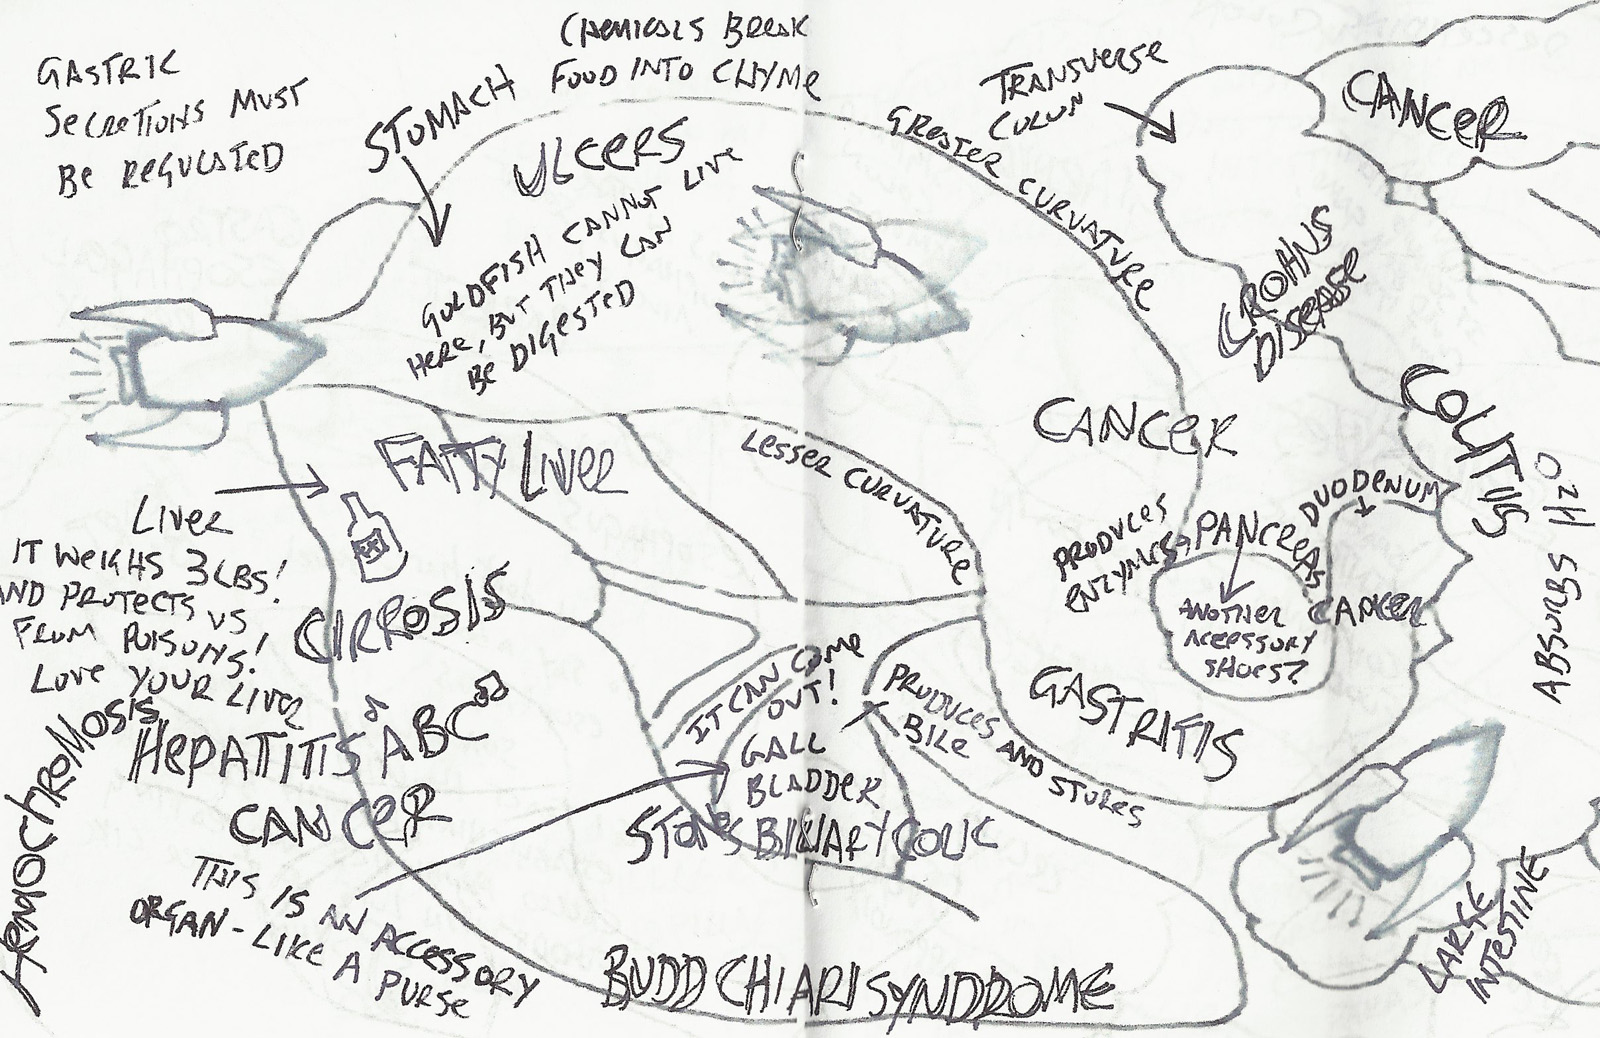 GASTRIC
SECRETIONS MUST
BE REGULATED
STOMACH
CHEMICALS BREAK
FOOD INTO CHYME
ULCERS
GOLDFISH CANNOT LIVE
HERE, BUT THEY CAN
BE DIGESTED
GREATER CURVATURE
TRANSVERSE
COLON
CANCER
CROHNS
DISEASE
COLITIS
ABSORBS H2O
CANCER
LESSER CURVATURE
FATTY LIVER
LIVER
IT WEIGHS 3 LBS!
AND PROTECTS US
FROM POISONS!
LOVE YOUR LIVER
CIRROSIS
HEPATITIS ABC
CANCER
HEMOCHROMOSIS
PRODUCES
ENZYMES
PANCREAS
DUODENUM
ANOTHER
ACCESSORY
SHOES?
CANCER
GASTRITIS
IT CAN COME
OUT!
GALL
BLADDER
STONES BILIARY COLIC
PRODUCES AND STORES
BILE
THIS IS AN ACCESSORY
ORGAN - LIKE A PURSE
BUDD CHIARI SYNDDROME
LARGE
INTESTINE